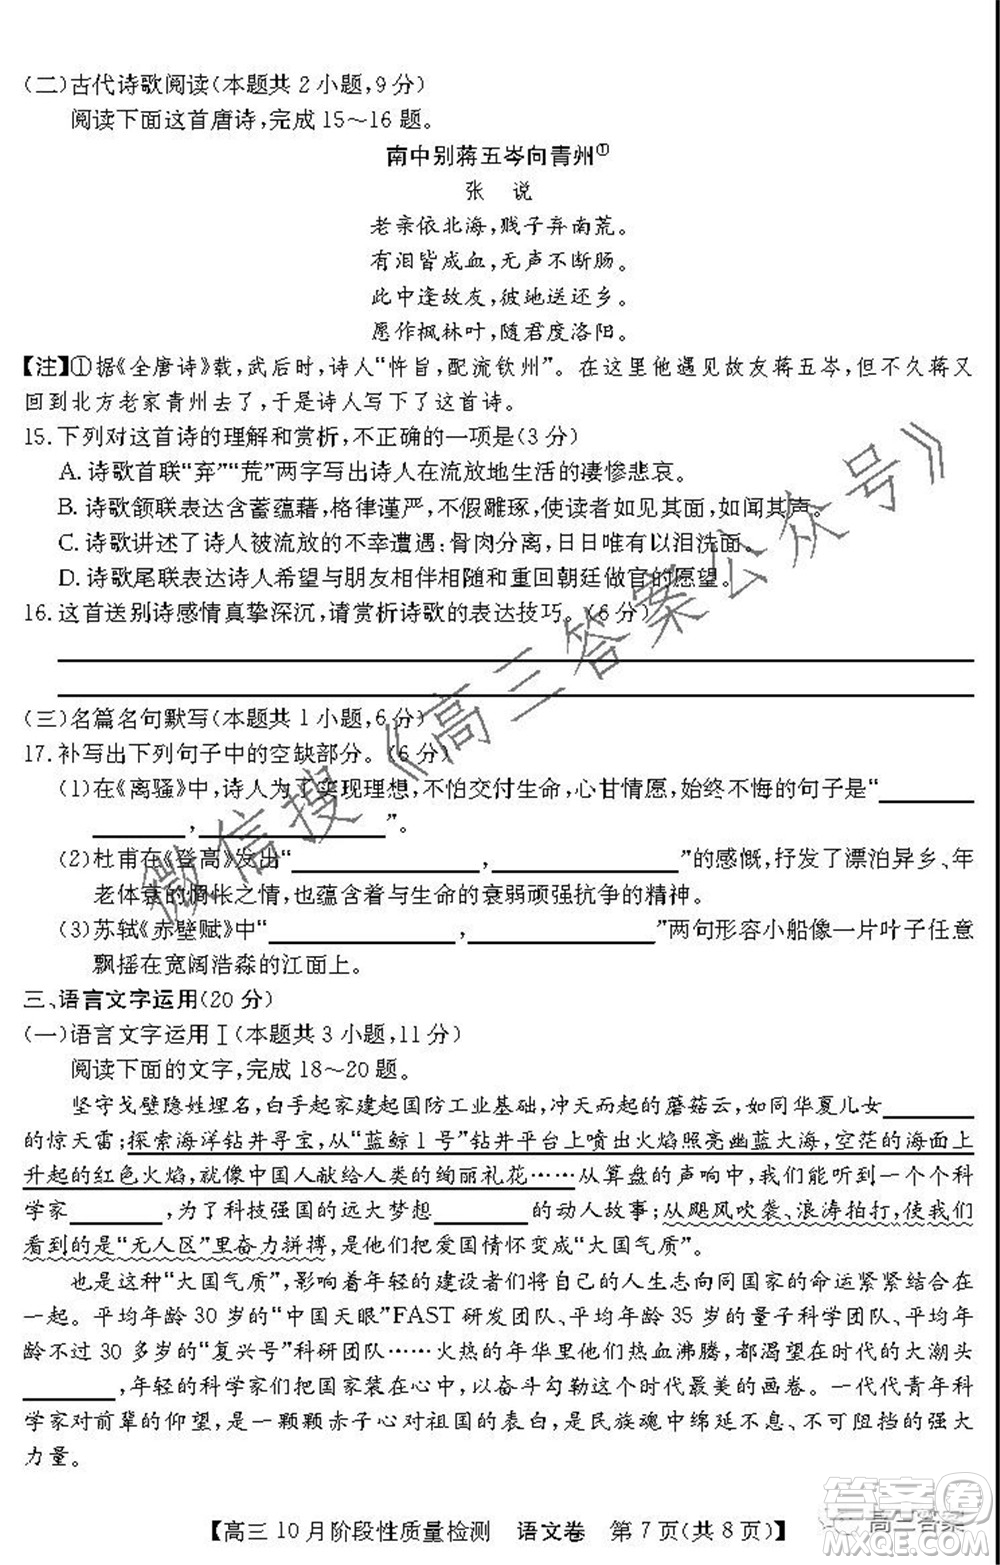 (二)古代诗歌阅读(本题共2小题,9分)
阅读下面这首唐诗,完成15～16题。
南中别蒋五岑向青州①
张 说
老亲依北海,贱子弃南荒。
有泪皆成血,无声不断肠。
此中逢故友,彼地送还乡。
愿作枫林叶,随君度洛阳。
【注】①据《全唐诗》载,武后时,诗人“忤旨,配流钦州”。在这里他遇见故友蒋五岑,但不久蒋又
回到北方老家青州去了,于是诗人写下了这首诗。
15.下列对这首诗的理解和赏析,不正确的一项是(3分)
A.诗歌首联“弃”“荒”两字写出诗人在流放地生活的凄惨悲哀。
B.诗歌颔联表达含蓄蕴藉,格律谨严,不假雕琢,使读者如见其面,如闻其声。
C.诗歌讲述了诗人被流放的不幸遭遇:骨肉分离,日日唯有以泪洗面。
D.诗歌尾联表达诗人希望与朋友相伴相随、重回朝廷做官的愿望。
16.这首送别诗感情真挚深沉,请赏析诗歌的表达技巧。(6分)
(三)名篇名句默写(本题共1小题,6分)
17.补写出下列句子中的空缺部分。(6分)
(1)在《离骚》中,诗人为了实现理想,不怕交付生命,心甘情愿,始终不悔的句子是“________
________,______________”。
(2)杜甫在《登高》发出“______________,______________”的感慨,抒发了漂泊异乡、年
老体衰的惆怅之情,也蕴含着与生命的衰弱顽强抗争的精神。
(3)苏轼《赤壁赋》中“______________,______________”两句形容小船像一片叶子任意
飘摇在宽阔浩淼的江面上。
三、语言文字运用(20分)
(一)语言文字运用Ⅰ(本题共3小题,11分)
阅读下面的文字,完成18～20题。
坚守戈壁隐姓埋名,白手起家建起国防工业基础,冲天而起的蘑菇云,如同华夏儿女________
的惊天雷;探索海洋钻井寻宝,从“蓝鲸1号”钻井平台上喷出火焰照亮幽蓝大海,空茫的海面上
升起的红色火焰,就像中国人献给人类的绚丽礼花……从算盘的声响中,我们能听到一个个科
学家________,为了科技强国的远大梦想________的动人故事;从飓风吹袭、浪涛拍打,使我们
看到的是“无人区”里奋力拼搏,将爱国情怀变成“大国气质”。
也是这种“大国气质”,影响着年轻的建设者们将自己的人生志向同国家的命运紧紧联系在
一起。平均年龄30岁的“中国天眼”FAST研发团队、平均年龄35岁的量子科学团队、平均年
龄不过30多岁的“复兴号”科研团队……火热的年华里他们热血沸腾,都渴望在时代的大潮头
________,年轻的科学家们把国家装在心中,以奋斗勾勒这个时代最美的画卷。一代代青年科
学家对前辈的仰望,是一颗颗赤子心对祖国的表白,是民族魂中绵延不息、不可阻挡的强大
力量。
【高三10月阶段性质量检测 语文卷 第7页(共8页)】
微信搜《高三答案公众号》
答案圈
高三答案